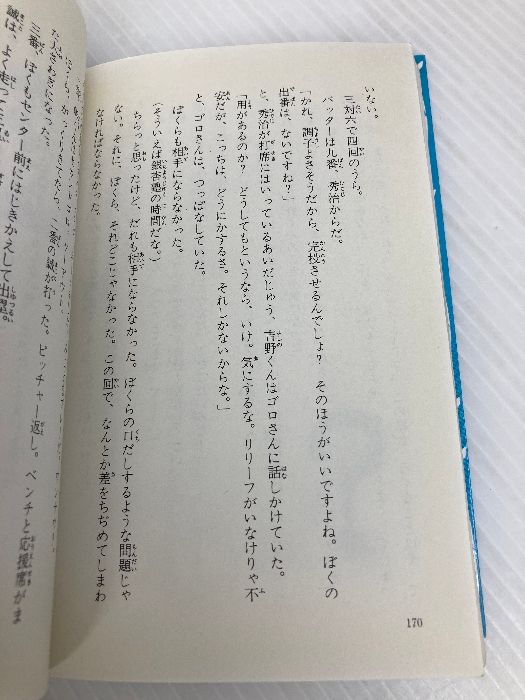 いない。
三対六で四回のうら。
バッターは九番、秀治からだ。
「かれ、調子よさそうだから、完投させるんでしょ? そのほうがいいですよね。ぼくの
出番は、ないですね?」
と、秀治が打席にはいっているあいだじゅう、吉野くんはゴロさんに話しかけていた。
「用があるのか? どうしてもというなら、いけ。気にするな。リリーフがいなけりゃ不
安だが、こっちは、どうにかするさ。それしかないからな。」
と、ゴロさんは、つっぱなしていた。
ぼくらも相手にならなかった。
(そういえば銀杏塾の時間だな。)
ちらっと思ったけど、だれも相手にならなかった。ぼくらの口だしするような問題じゃ
ない。それに、ぼくら、それどこじゃなかった。この回で、なんとか差をちぢめてしまわ
なければならなかった。
170
た大さわぎになった。
三番、ぼくもセンター前にはじきかえして出塁。
誠は、よく走って
二番の純が行った。ピッチャー返し。ベンチと応援席がま